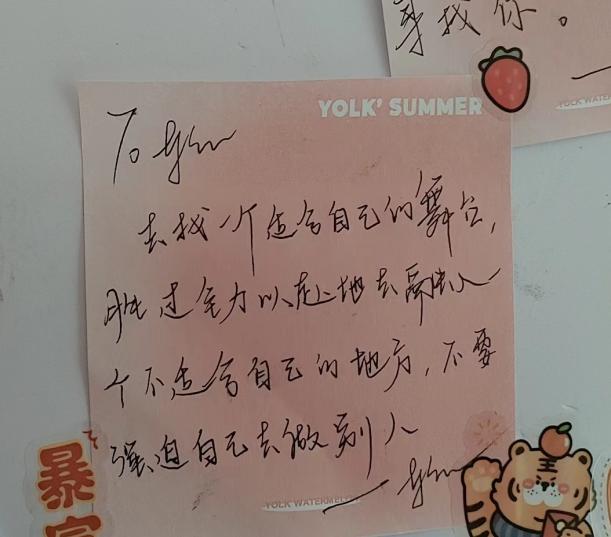 寻找你。
YOLK' SUMMER
To
去找一个适合自己的舞台，
胜过全力以赴地去融入一
个不适合自己的地方，不要
强迫自己去做别人
YOLK WATERMEL
YOLK WATE
暴富
王